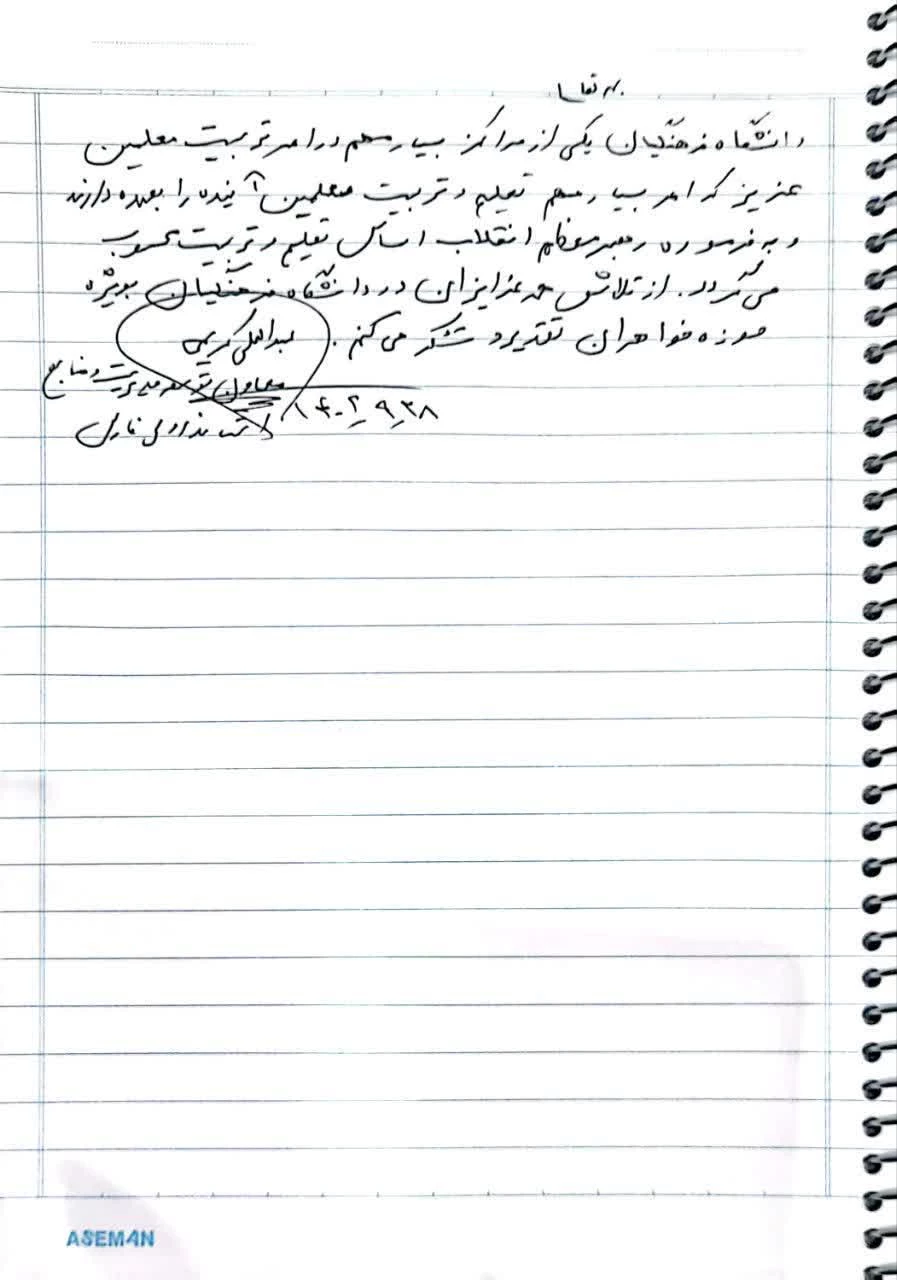 بسمه تعالی
دانشگاه فرهنگیان یکی از مراکز بسیار مهم در امر تربیت معلمین
عزیز که امر بسیار مهم تعلیم و تربیت معلمین آینده را بعهده دارند
و به فرموده رهبر معظم انقلاب اساس تعلیم و تربیت محسوب
می‌گردد. از تلاش همه عزیزان در دانشگاه فرهنگیان بویژه
حوزه خواهران تقدیر و تشکر می کنم. عبدالعلی کریمی
معاون توسعه مدیریت و منابع
۱۴۰۲٫۹٫۲۸
استانداری فارس
ASEMAN